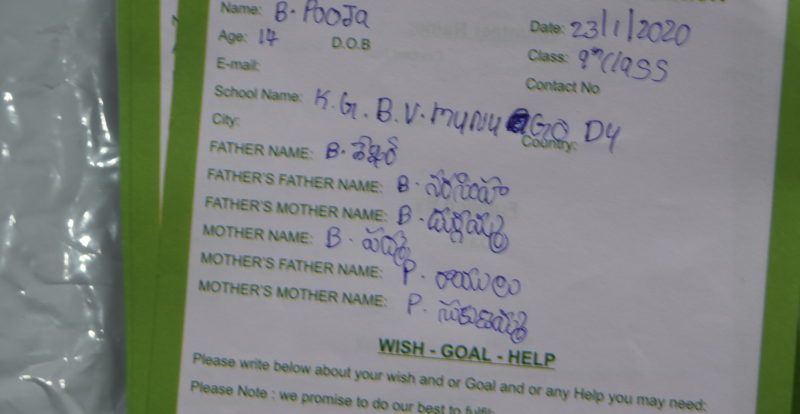 Name: B. POOJA
Date: 23/1/2020
Age: 14 D.O.B
Class: 9th Class
E-mail:
Contact No
School Name: K.G.B.V. MUNUGO DU
City:
Country:
FATHER NAME: B. శేఖర్
FATHER'S FATHER NAME: B. నర్సింహ
FATHER'S MOTHER NAME: B.
MOTHER NAME: B. పద్మ
MOTHER'S FATHER NAME: P. రాములు
MOTHER'S MOTHER NAME: P.
WISH - GOAL - HELP
Please write below about your wish and or Goal and or any Help you may need:
Please Note : we promise to do our best to fulfil